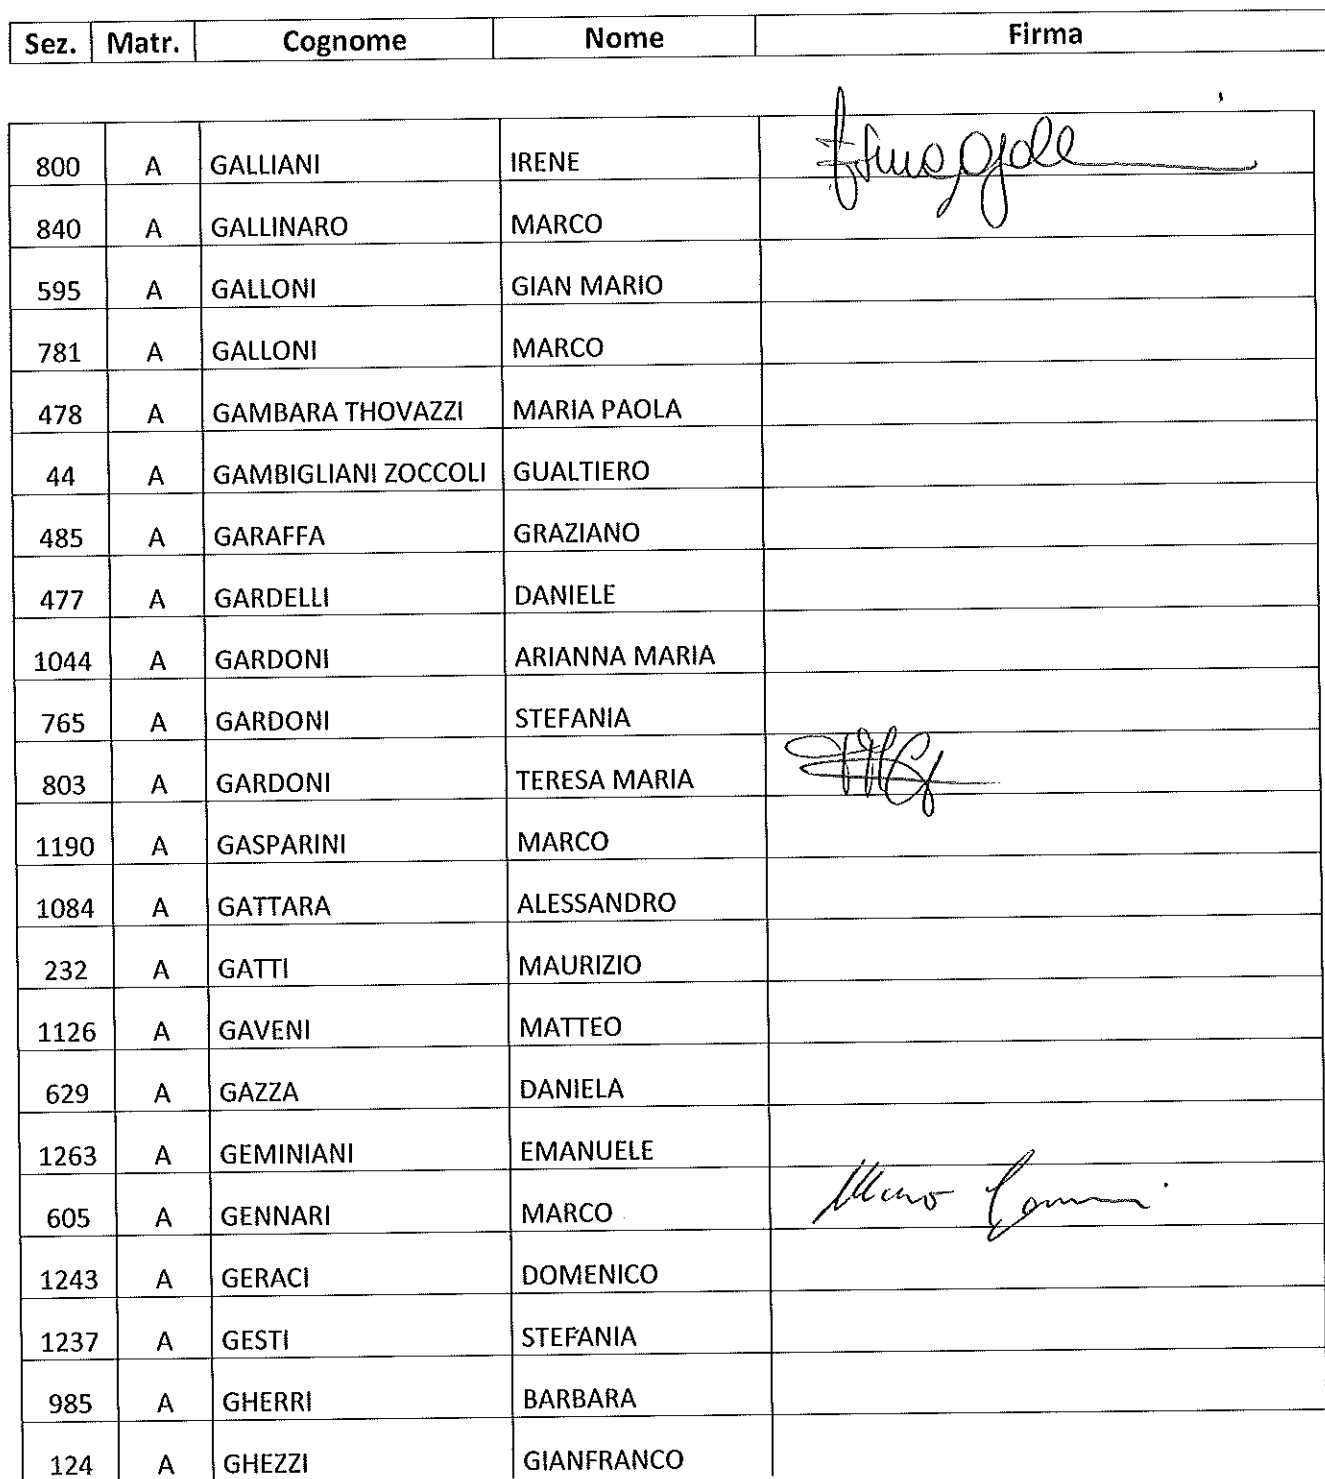 Sez. Matr. Cognome Nome Firma
800 A GALLIANI IRENE
840 A GALLINARO MARCO
595 A GALLONI GIAN MARIO
781 A GALLONI MARCO
478 A GAMBARA THOVAZZI MARIA PAOLA
44 A GAMBIGLIANI ZOCCOLI GUALTIERO
485 A GARAFFA GRAZIANO
477 A GARDELLI DANIELE
1044 A GARDONI ARIANNA MARIA
765 A GARDONI STEFANIA
803 A GARDONI TERESA MARIA
1190 A GASPARINI MARCO
1084 A GATTARA ALESSANDRO
232 A GATTI MAURIZIO
1126 A GAVENI MATTEO
629 A GAZZA DANIELA
1263 A GEMINIANI EMANUELE
605 A GENNARI MARCO
1243 A GERACI DOMENICO
1237 A GESTI STEFANIA
985 A GHERRI BARBARA
124 A GHEZZI GIANFRANCO